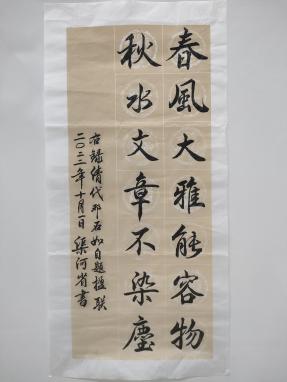 春風大雅能容物
秋水文章不染塵
右錄清代邓石如自題楹联
二〇二二年十月一日 渠河省書